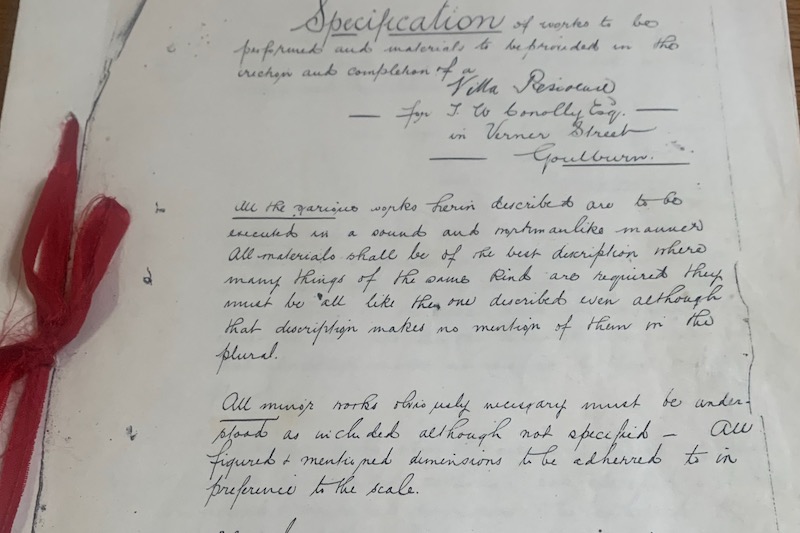 Specification of works to be
performed and materials to be provided in the
erection and completion of a
Villa Residence
— for T. W. Conolly Esq. —
in Verner Street
— Goulburn.
All the various works herin described are to be
executed in a sound and workmanlike manner
All materials shall be of the best description where
many things of the same kind are required they
must be all like the one described even although
that description makes no mention of them in the
plural.
All minor works obviously necessary must be under-
stood as included although not specified — All
figured + mentioned dimensions to be adherred to in
preference to the scale.